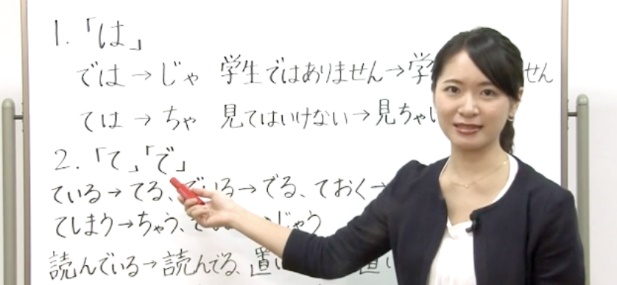 1.「は」
では→じゃ 学生ではありません→学 せん
ては→ちゃ 見てはいけない→見ちゃい
2.「て」「で」
ている→てる、でいる→でる、ておく→
てしまう→ちゃう、 じゃう
読んでいる→読んでる、置い 置い